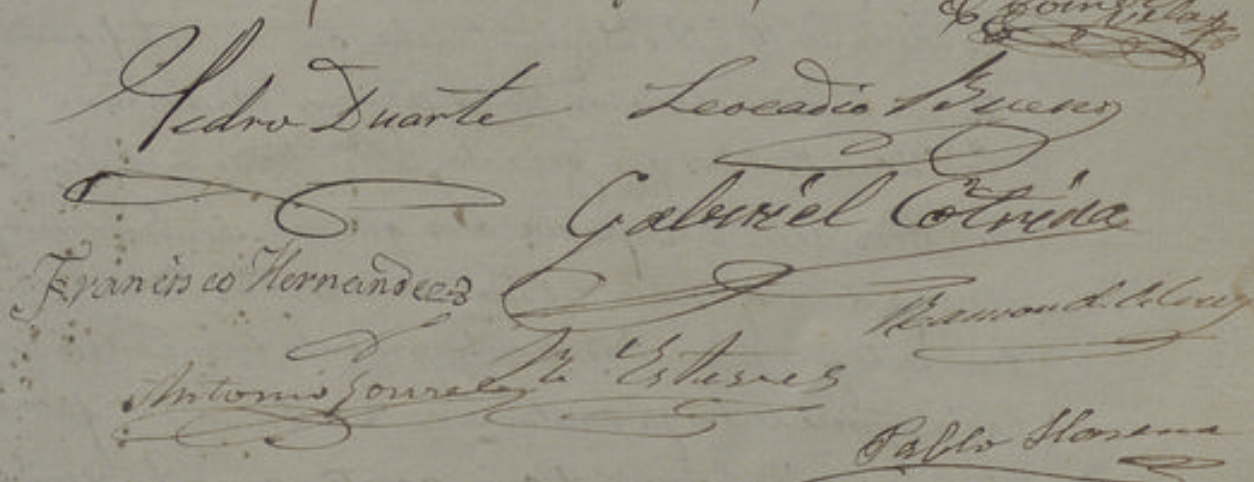 Pedro Duarte
Leocadio Bueno
Gabriel Cotrina
Francisco Hernandez
Ramon
Antonio Gonzalez
Esteves
Pablo